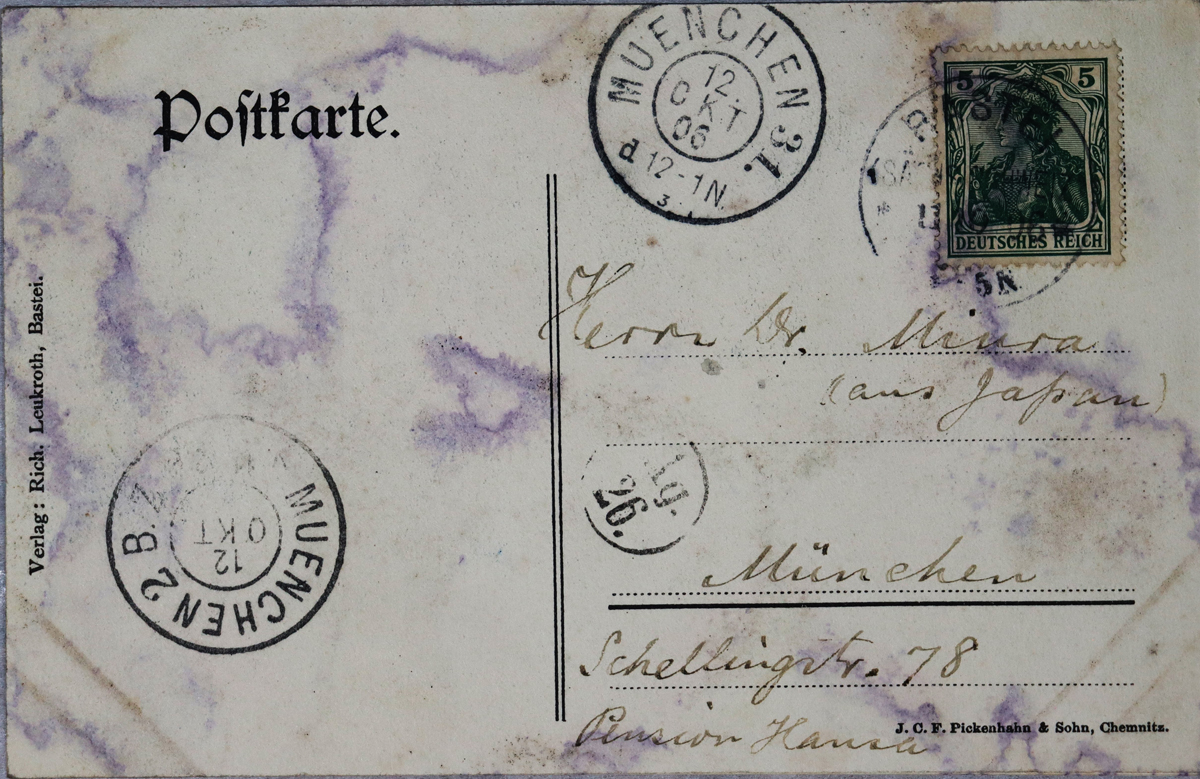 Postkarte.
MUENCHEN 31.
12
OKT
06
d 12-1N.
3
5 5
DEUTSCHES REICH
BASTEI
5N
Herrn Dr. Miura
(aus Japan)
Lg.
26.
München
Schellingstr. 78
Pension Hansa
J. C. F. Pickenhahn & Sohn, Chemnitz.
Verlag: Rich. Leukroth, Bastei.
MUENCHEN 2 B.Z
12
OKT